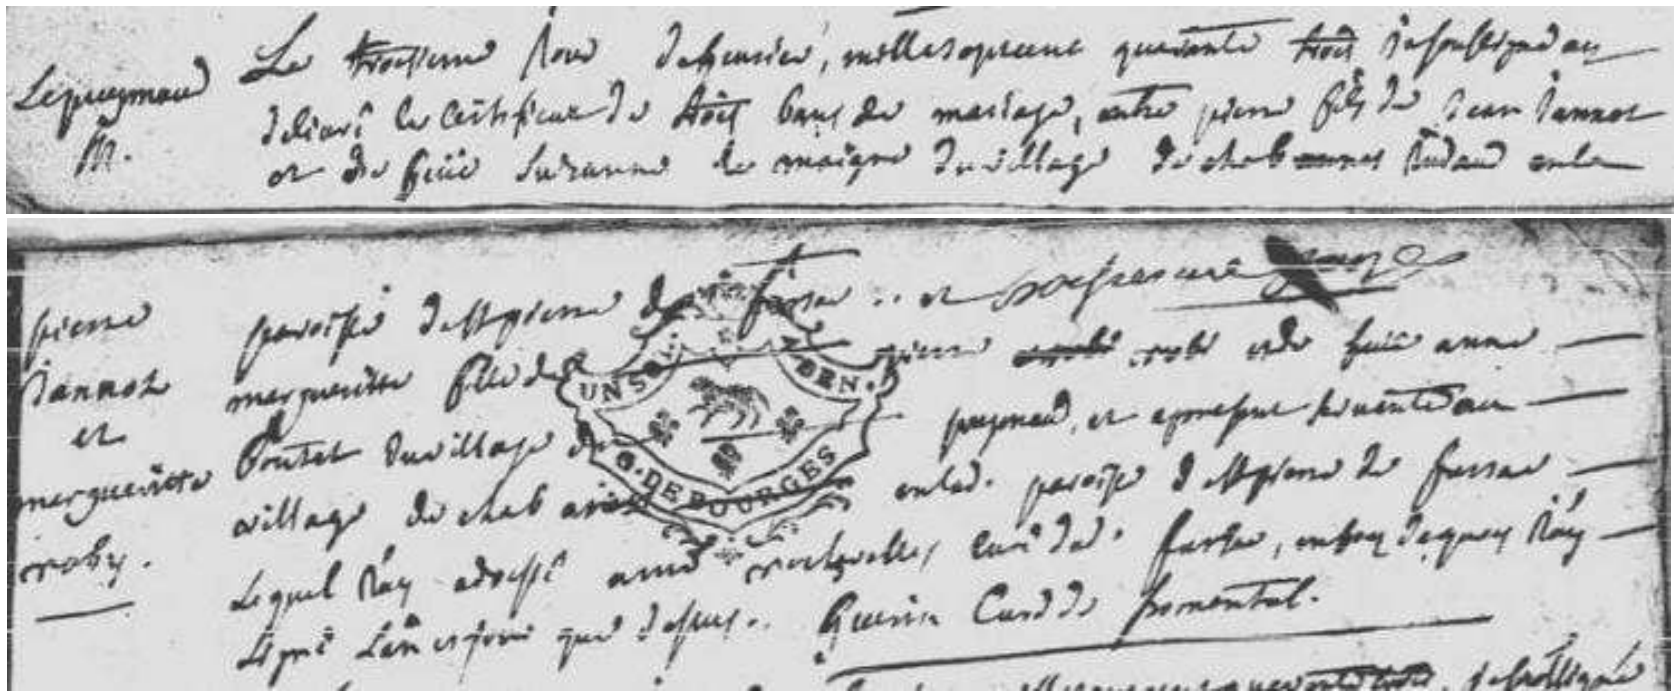 Lepuymaud
M.
Le troisieme Jour de fevrier, mille sept cent quarante trois Je soussigné ay
deliuré le certificat de trois bans de mariage, entre pierre fils de Jean Jannot
et de feüe Suzanne du village de chab en la
pierre
Jannot
et
margueritte
roby.
paroisse de St pierre de fursac .. et
margueritte fille de pierre robi et de feue anne
Boutet du village de puymaud, et a present au
village de chab en lad. paroisse de St pierre de fursac
Lequel J'ay adressé a curé dud. fursac, en foy de quoy J'ay
signé L'an et jour que dessus. Guerin Curé de fromental.
UNS DEN.
G. DE BOURGES
quarante trois, Je soussigné